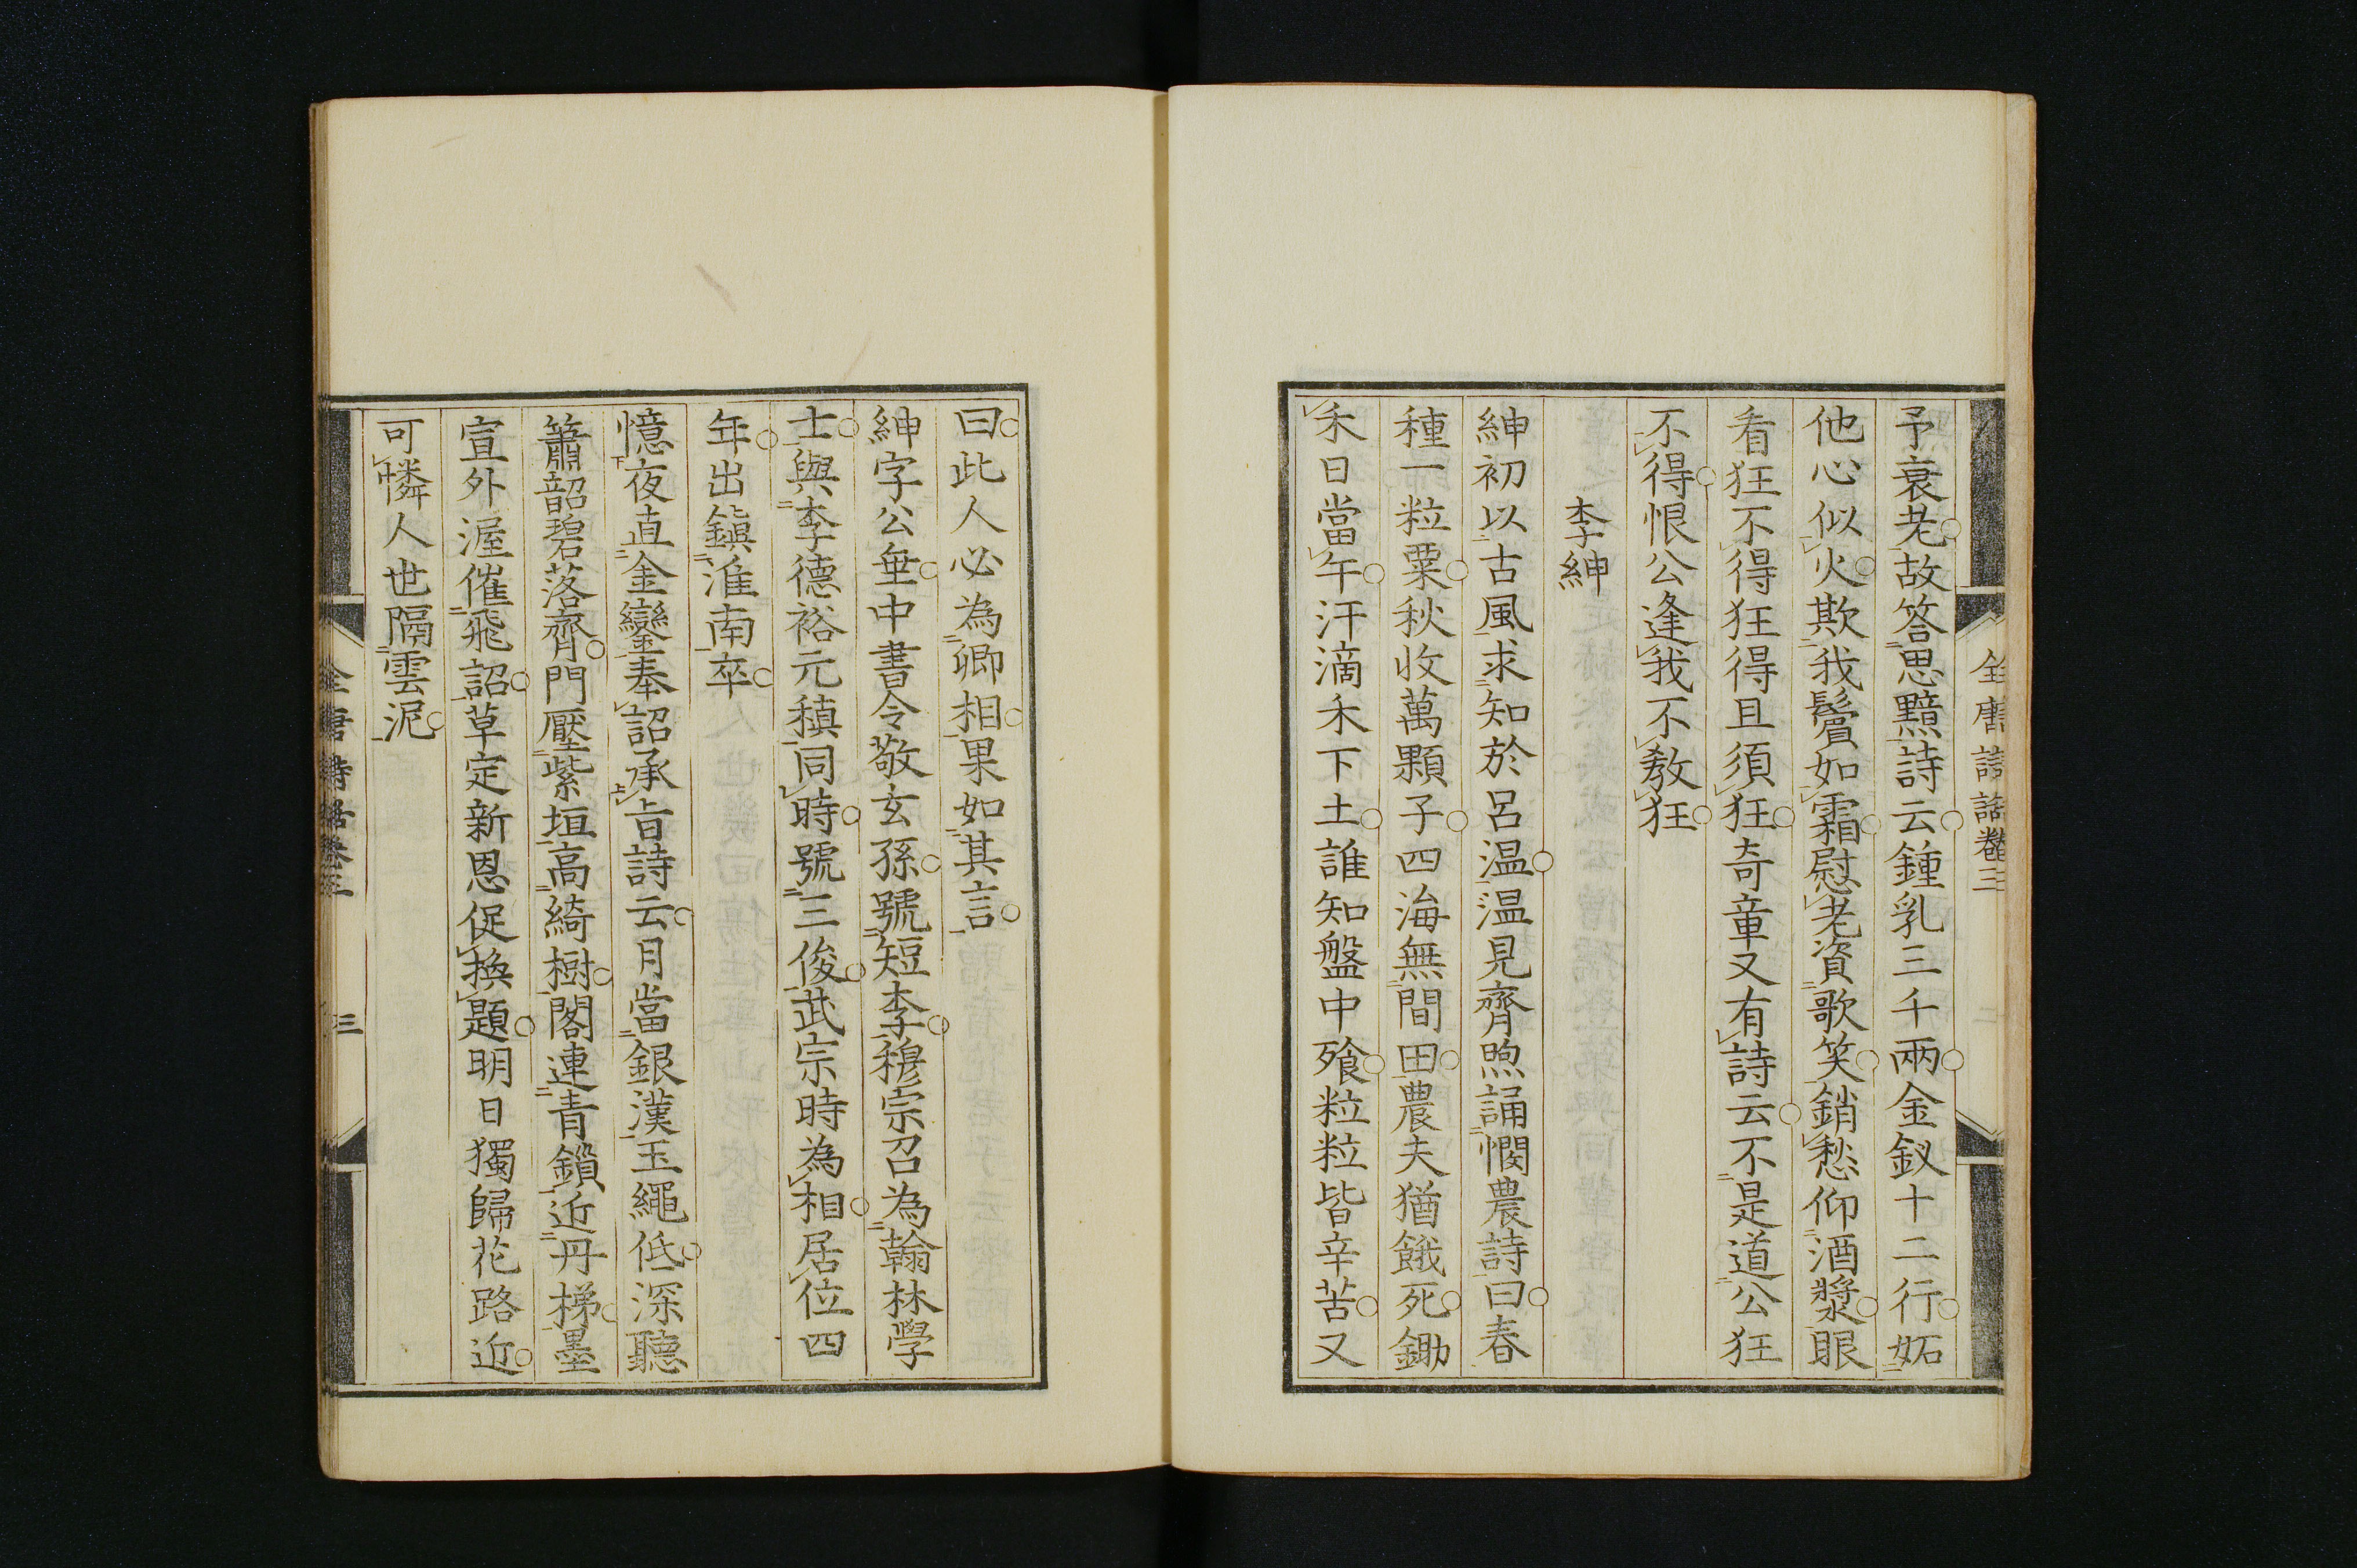 全唐詩話卷三
予衰老故答思黯詩云鍾乳三千兩金釵十二行妬
他心似火欺我鬢如霜慰老資歌笑銷愁仰酒漿眼
看狂不得狂得且須狂奇章又有詩云不是道公狂
不得恨公逢我不敎狂
李紳
紳初以古風求知於呂温温見齊煦誦憫農詩曰春
種一粒粟秋收萬顆子四海無間田農夫猶餓死鋤
禾日當午汗滴禾下土誰知盤中飱粒粒皆辛苦又
曰此人必為卿相果如其言
紳字公垂中書令敬玄孫號短李穆宗召為翰林學
士與李德裕元稹同時號三俊武宗時為相居位四
年出鎭淮南卒
憶夜直金鑾奉詔承㫖詩云月當銀漢玉繩低深聽
簫韶碧落齊門壓紫垣高綺樹閣連青鎖近丹梯墨
宣外渥催飛詔草定新恩促換題明日獨歸花路近
可憐人世隔雲泥
全唐詩話卷三
三